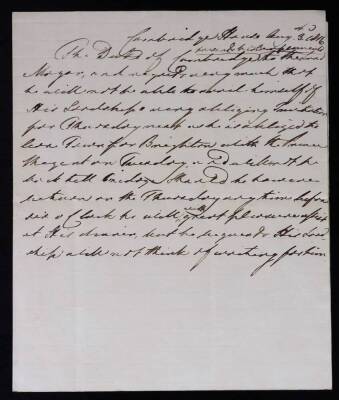 Cambridge House Aug. 3d
The Duke of Cambridge presents his Compliments to the Lord
Mayor, and regrets very much that
he will not be able to avail himself of
His Lordship's very obliging Invitation
for Thursday next as he is obliged to
leave Town for Brighton with the
on Tuesday and
till Friday. Should he however
return on the Thursday any time before
six o'Clock he will with great pleasure assist
at His dinner, but he requests His Lord
ship will not think of waiting for him